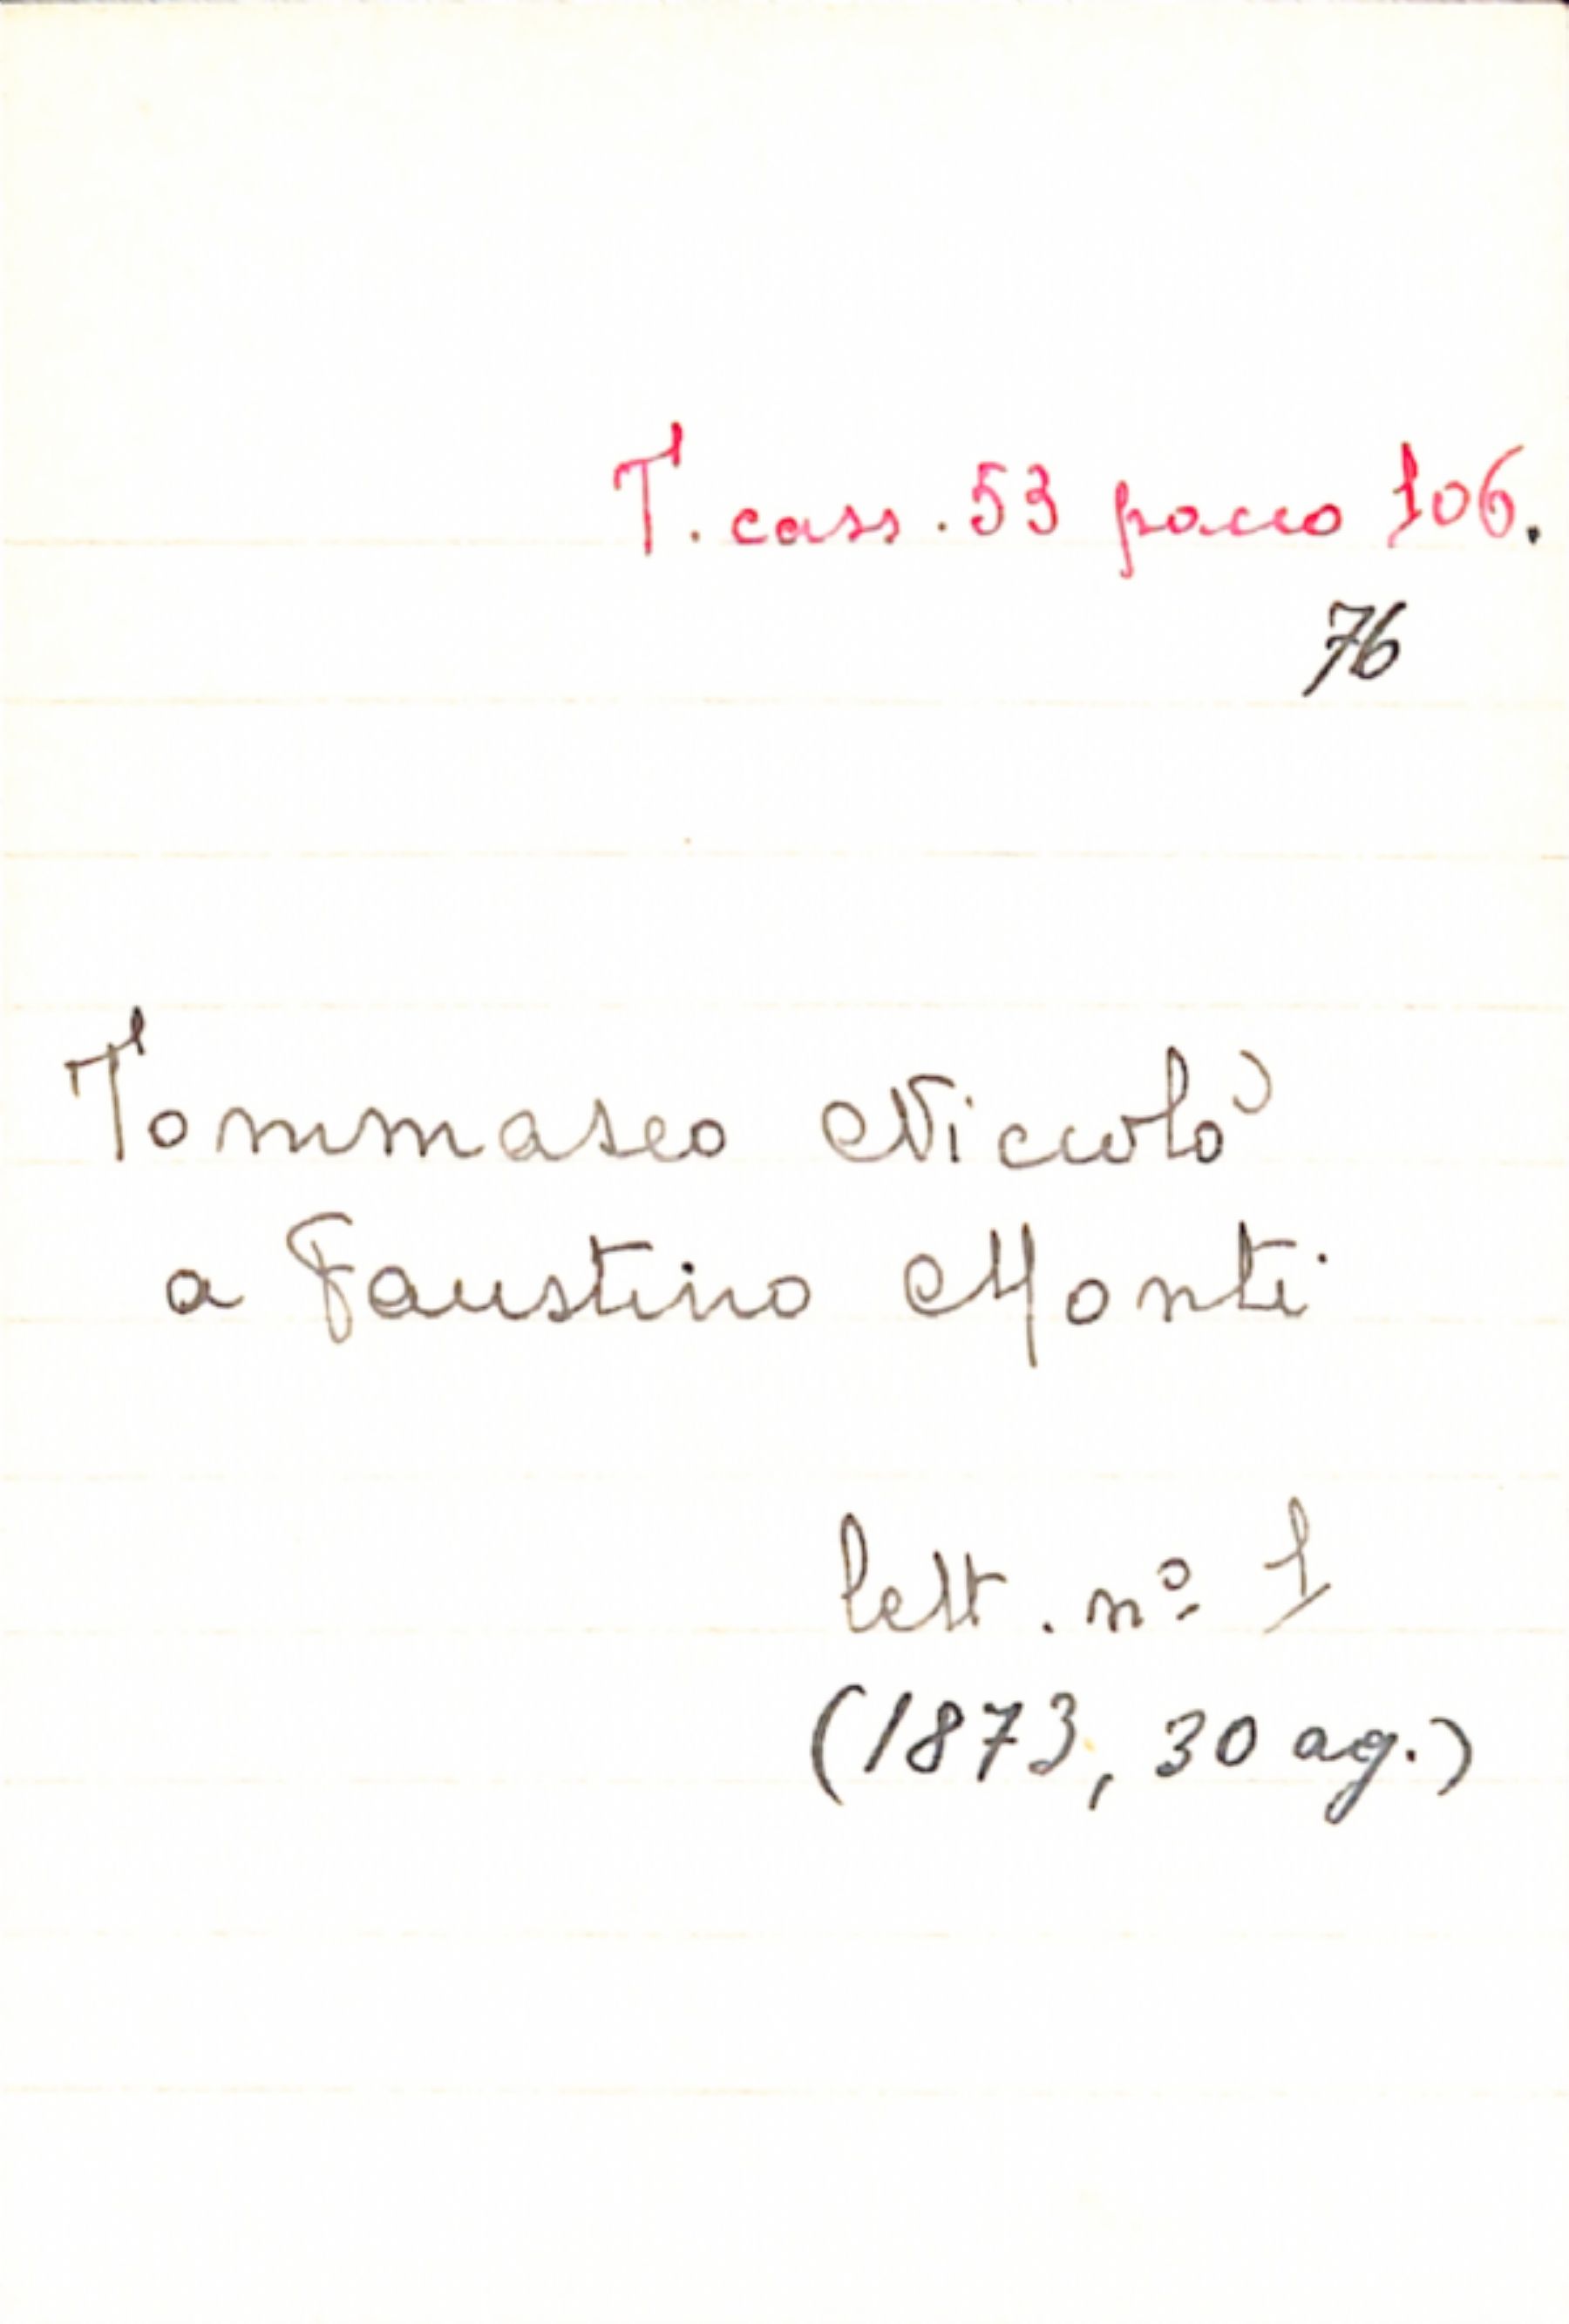 T. cass. 53 pacco 106.
76
Tommaseo Niccolò
a Faustino Monti
lett. nº 1
(1873, 30 ag.)